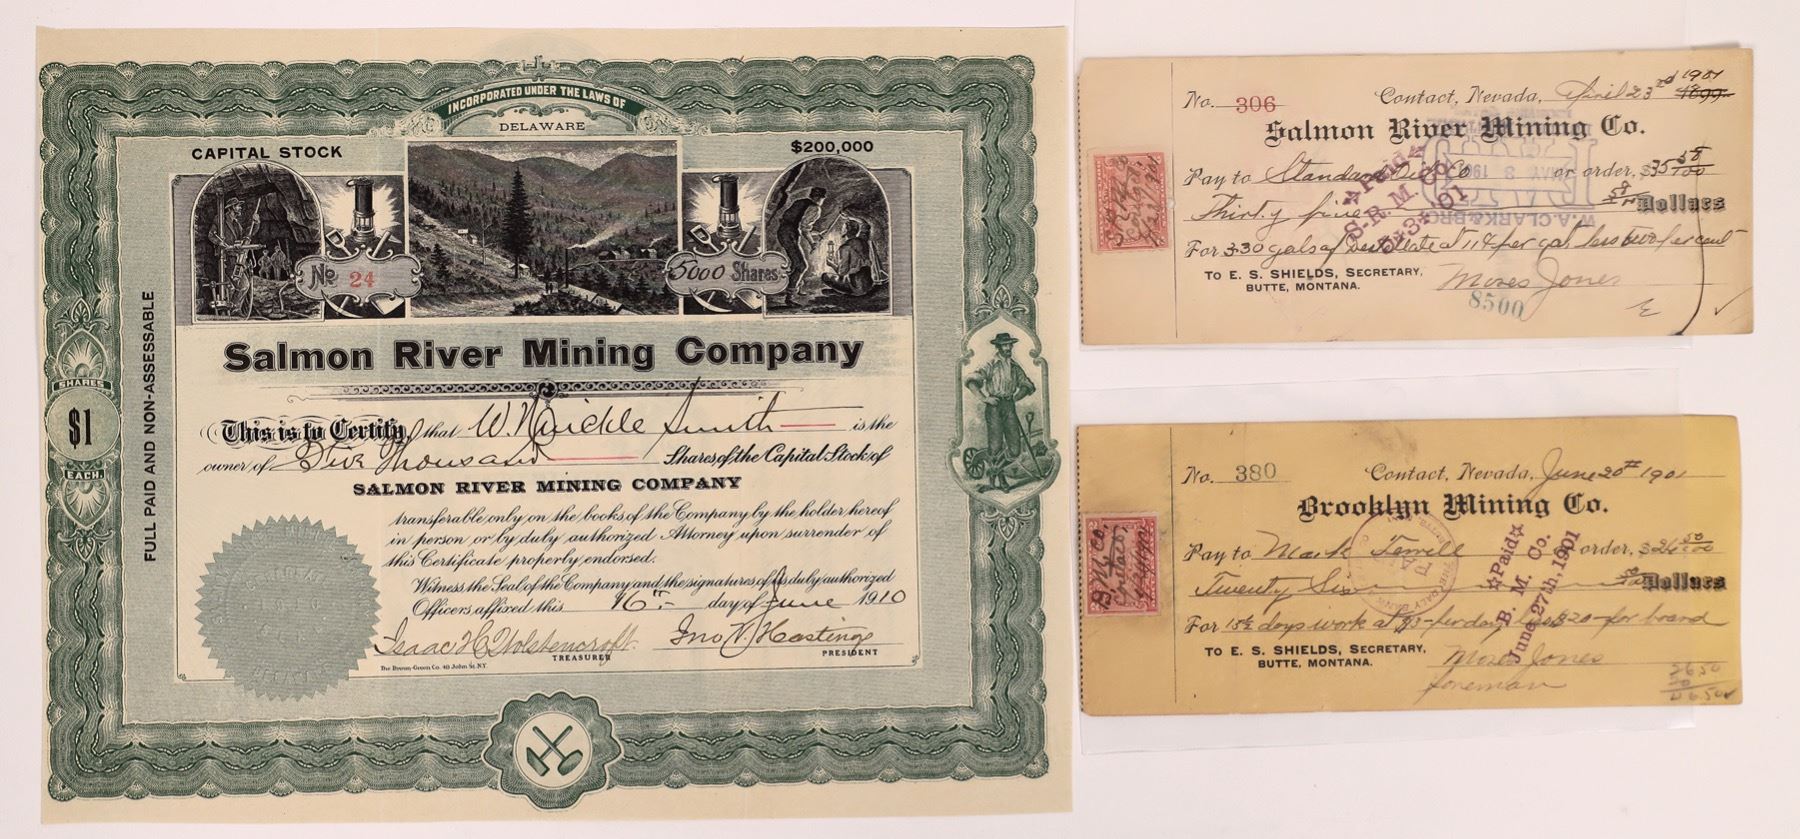 INCORPORATED UNDER THE LAWS OF
DELAWARE
CAPITAL STOCK
$200,000
No 24
5000 Shares
Salmon River Mining Company
This is to Certify that W. Smith is the
owner of Five Thousand Shares of the Capital Stock of
SALMON RIVER MINING COMPANY
transferable only on the books of the Company by the holder hereof
in person or by duly authorized Attorney upon surrender of
this Certificate properly endorsed.
Witness the Seal of the Company and the signatures of its duly authorized
Officers affixed this 16th day of June 1910
Isaac H. Wolstencroft
TREASURER
Jno. V. Hastings
PRESIDENT
The Broun-Green Co. 40 John St. N.Y.
FULL PAID AND NON-ASSESSABLE
SHARES
$1
EACH
No. 306 Contact, Nevada, April 23rd 1901 1899
Salmon River Mining Co.
Pay to Standard Oil Co or order, $35 58/100
Thirty five 58/100 Dollars
For 330 gals of at 11¢ per gal less two per cent
TO E. S. SHIELDS, SECRETARY,
BUTTE, MONTANA.
Moses Jones
8500
☆Paid☆
S.R.M. Co.
5-3-01
W.A. CLARK & BRO
PAID
No. 380 Contact, Nevada, June 20th 1901
Brooklyn Mining Co.
Pay to Mark Terrill or order, $26 50/100
Twenty Six 50/100 Dollars
For 15½ days work at $3- per day less $20- for board
TO E. S. SHIELDS, SECRETARY,
BUTTE, MONTANA.
Moses Jones
foreman
☆Paid☆
B. M. Co.
June 27th, 1901
PAID
46.50
20
26.50